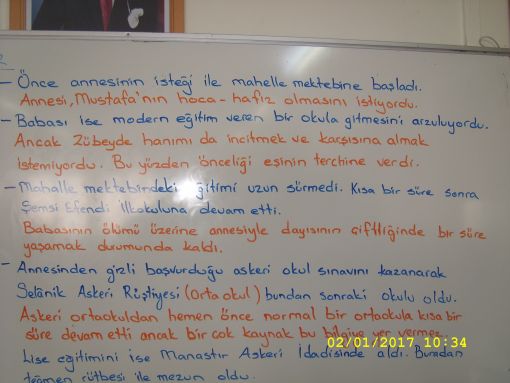 - Önce annesinin isteği ile mahalle mektebine başladı.
Annesi, Mustafa'nın hoca-hafız olmasını istiyordu.
- Babası ise modern eğitim veren bir okula gitmesini arzuluyordu.
Ancak Zübeyde hanımı da incitmek ve karşısına almak
istemiyordu. Bu yüzden önceliği eşinin tercihine verdi.
- Mahalle mektebindeki eğitimi uzun sürmedi. Kısa bir süre sonra
Şemsi Efendi İlkokuluna devam etti.
Babasının ölümü üzerine annesiyle dayısının çiftliğinde bir süre
yaşamak durumunda kaldı.
- Annesinden gizli başvurduğu askeri okul sınavını kazanarak
Selânik Askeri Rüştiyesi (Orta okul) bundan sonraki okulu oldu.
Askeri ortaokuldan hemen önce normal bir ortaokula kısa bir
süre devam etti ancak bir çok kaynak bu bilgiye yer vermez.
02/01/2017 10:34
Lise eğitimini ise Manastır Askeri İdadisinde aldı. Buradan
teğmen rütbesi ile mezun oldu.